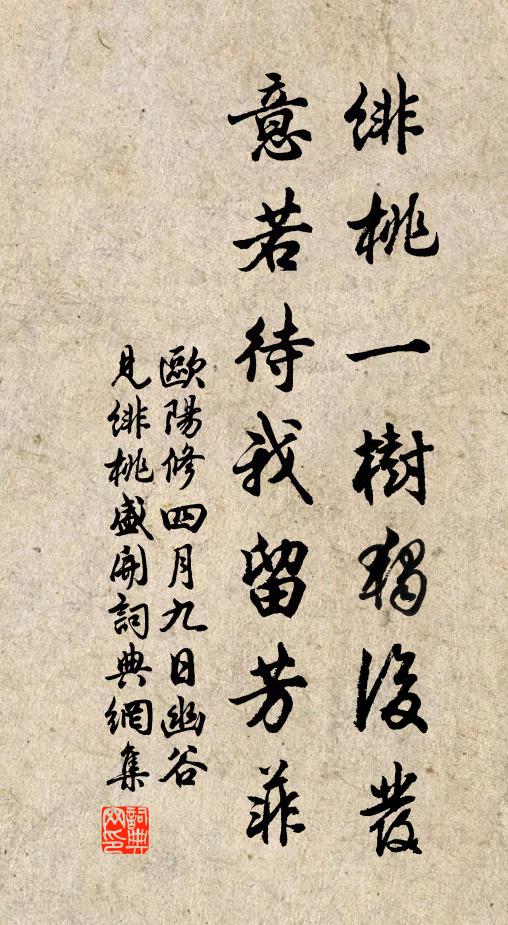 緋桃一樹獨後發
意若待我留芳菲
歐陽修四月九日幽谷
見緋桃盛開詞典網集
詞典
网印